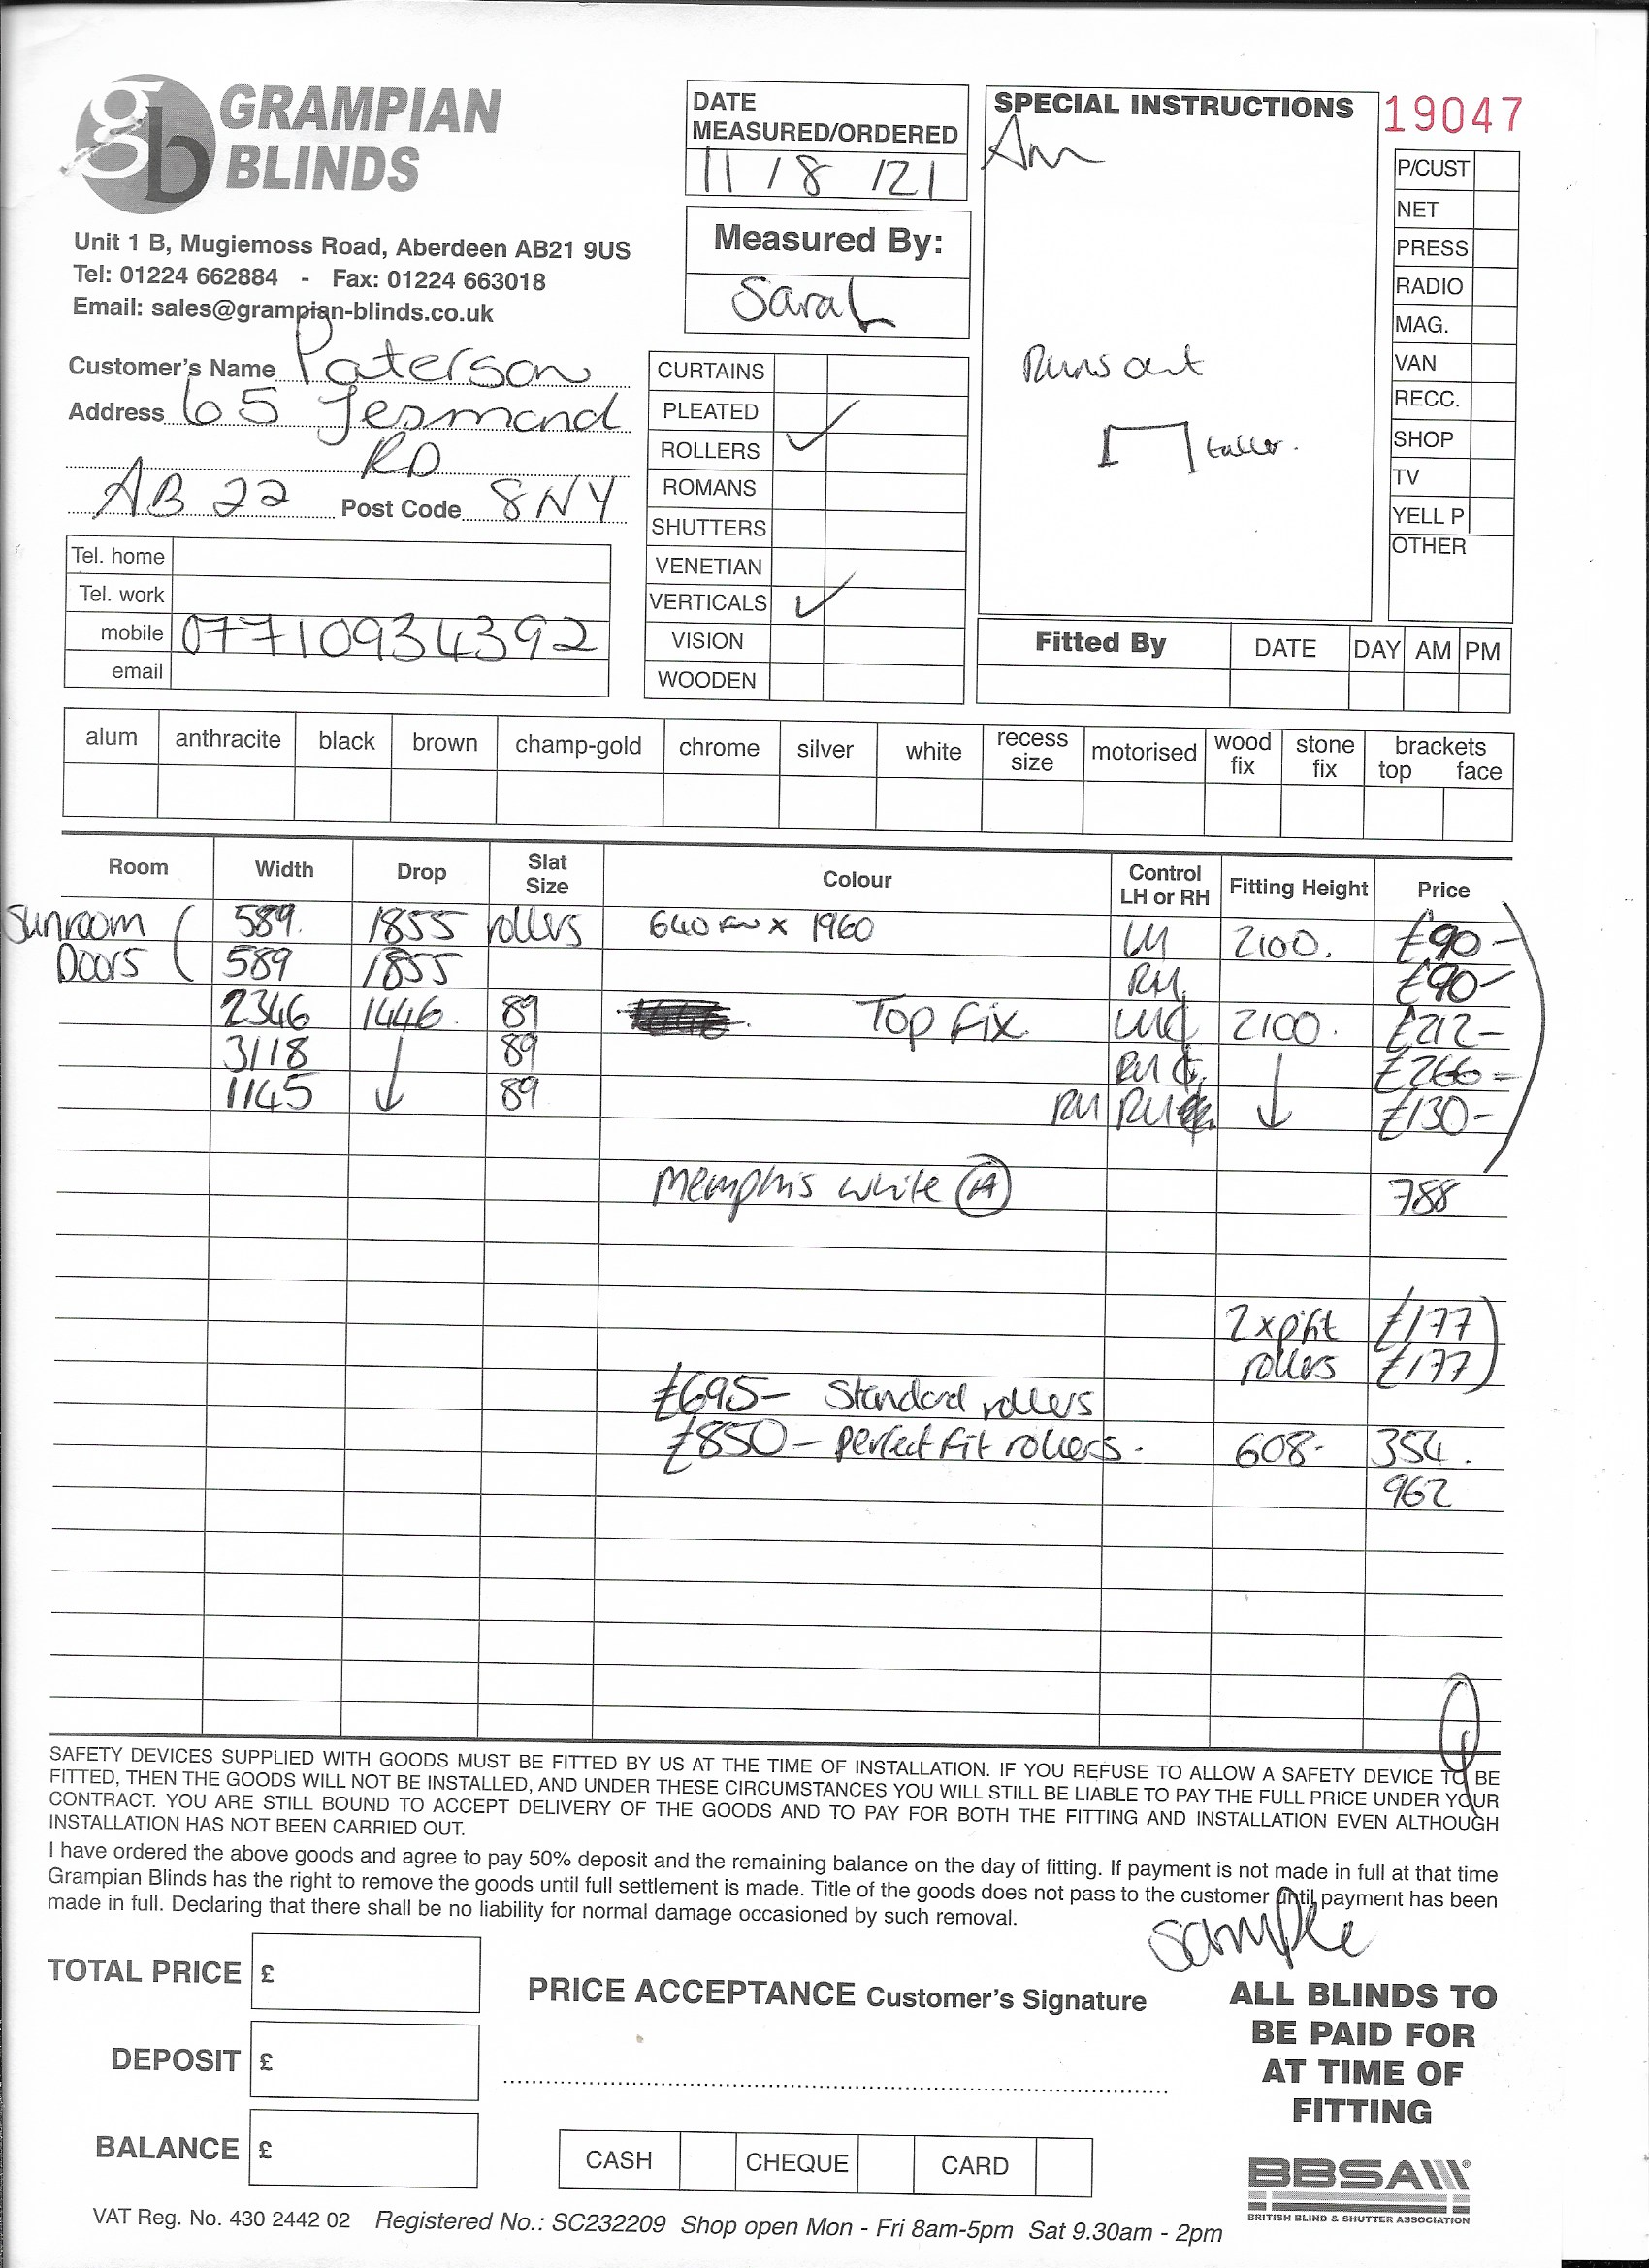 GRAMPIAN
BLINDS
Unit 1 B, Mugiemoss Road, Aberdeen AB21 9US
Tel: 01224 662884 - Fax: 01224 663018
Email: sales@grampian-blinds.co.uk
Customer's Name Paterson
Address 65 Jesmond
RD
AB 22 Post Code 8NY
Tel. home
Tel. work
mobile 07710934392
email
DATE
MEASURED/ORDERED
11 / 8 / 21
Measured By:
Sarah
CURTAINS
PLEATED
ROLLERS ✓
ROMANS
SHUTTERS
VENETIAN
VERTICALS ✓
VISION
WOODEN
SPECIAL INSTRUCTIONS
Am
Runs out
taller.
19047
P/CUST
NET
PRESS
RADIO
MAG.
VAN
RECC.
SHOP
TV
YELL P
OTHER
Fitted By DATE DAY AM PM
alum anthracite black brown champ-gold chrome silver white recess size motorised wood fix stone fix brackets top face
Room Width Drop Slat Size Colour Control LH or RH Fitting Height Price
Sunroom 589. 1855 rollers 640 x 1960 LH 2100. £90-
Doors 589 1855 RH £90-
2346 1446. 89 Top Fix 2100. £212-
3118 89 RH £266-
1145 89 RH RH £130-
Memphis white A 788
2 x pfit £177
rollers £177
£695- Standard rollers
£850- perfect fit rollers. 608- 354.
962
SAFETY DEVICES SUPPLIED WITH GOODS MUST BE FITTED BY US AT THE TIME OF INSTALLATION. IF YOU REFUSE TO ALLOW A SAFETY DEVICE TO BE
FITTED, THEN THE GOODS WILL NOT BE INSTALLED, AND UNDER THESE CIRCUMSTANCES YOU WILL STILL BE LIABLE TO PAY THE FULL PRICE UNDER YOUR
CONTRACT. YOU ARE STILL BOUND TO ACCEPT DELIVERY OF THE GOODS AND TO PAY FOR BOTH THE FITTING AND INSTALLATION EVEN ALTHOUGH
INSTALLATION HAS NOT BEEN CARRIED OUT.
I have ordered the above goods and agree to pay 50% deposit and the remaining balance on the day of fitting. If payment is not made in full at that time
Grampian Blinds has the right to remove the goods until full settlement is made. Title of the goods does not pass to the customer until payment has been
made in full. Declaring that there shall be no liability for normal damage occasioned by such removal.
sample
TOTAL PRICE £
DEPOSIT £
BALANCE £
PRICE ACCEPTANCE Customer's Signature
CASH CHEQUE CARD
ALL BLINDS TO
BE PAID FOR
AT TIME OF
FITTING
BBSA
BRITISH BLIND & SHUTTER ASSOCIATION
VAT Reg. No. 430 2442 02 Registered No.: SC232209 Shop open Mon - Fri 8am-5pm Sat 9.30am - 2pm